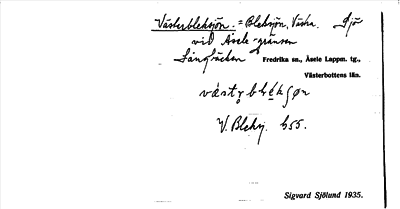 Västerbleksjön. = Bleksjön, Västra. Sjö
vid Åsele-gränsen
Långbäcken Fredrika sn., Åsele Lappm. tg.,
Västerbottens län.
V. Bleksj. 655.
Sigvard Sjölund 1935.